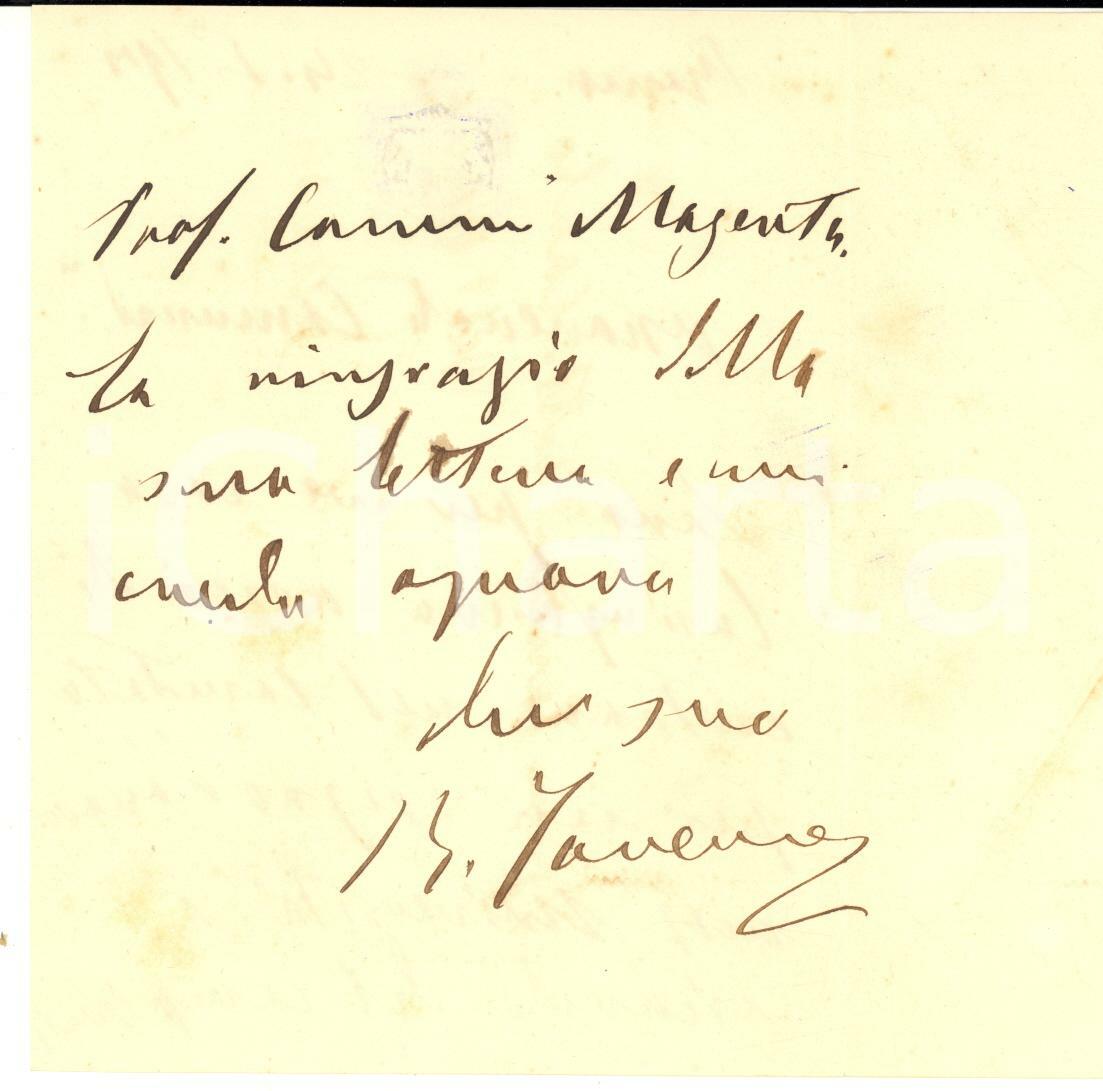 Prof. Cammi Magenta.
La ringrazio della
sua lettera e mi
creda ognora
suo
R. Taverna
iCharta